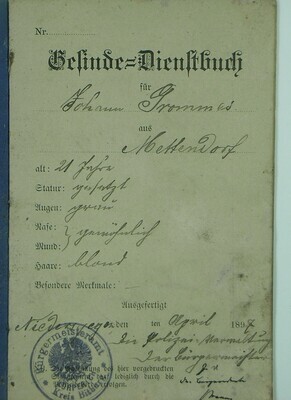 Nr.
Gesinde=Dienstbuch
für
Johann Prommes
aus
Mettendorf
alt: 21 Jahre
Statur: gesetzt
Augen: grau
Nase: } gewöhnlich
Mund:
Haare: blond
Besondere Merkmale: —
Ausgefertigt
den ten April 1897
Die Polizei-Verwaltung
Der Bürgermeister
Bürgermeisteramt
Kreis